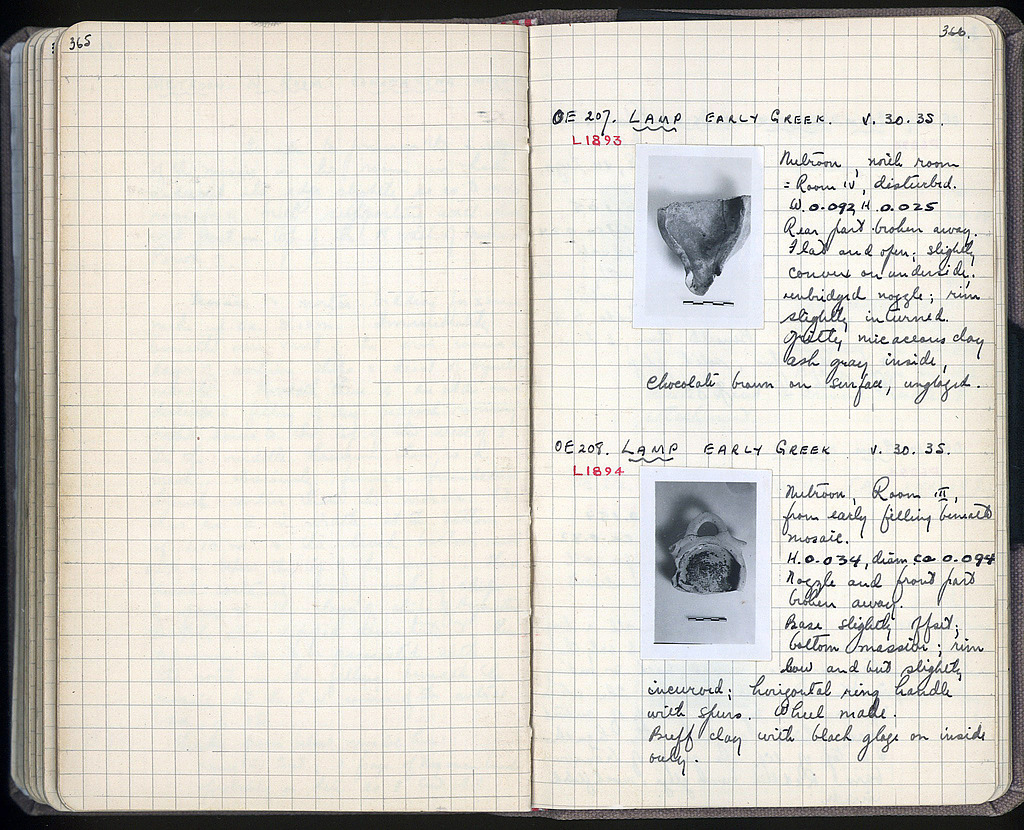 365
366.
OE 207. LAMP EARLY GREEK. V. 30. 35.
L1893
Metroon, north room
= Room IV, disturbed.
W. 0.092, H. 0.025
Rear part broken away.
Flat and open; slightly
convex on underside;
unbridged nozzle; rim
slightly inturned.
Gritty micaceous clay
ash gray inside,
chocolate brown on surface, unglazed.
OE 208. LAMP EARLY GREEK V. 30. 35.
L1894
Metroon, Room III,
from early filling beneath
mosaic.
H. 0.034, diam. ca 0.094
Nozzle and front part
broken away.
Base slightly offset;
bottom massive; rim
low and but slightly
incurved; horizontal ring handle
with spurs. Wheel made.
Buff clay with black glaze on inside
only.